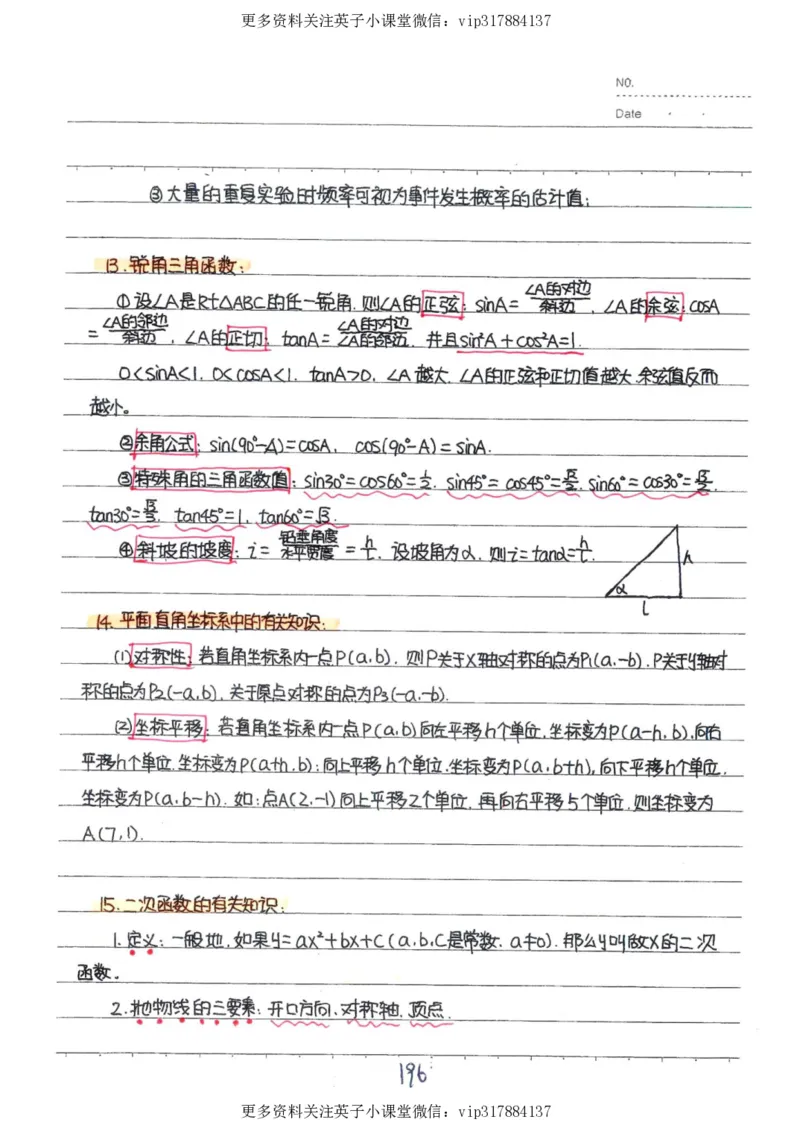 更多资料关注英子小课堂微信：vip317884137
NO.
Date
③大量的重复实验时频率可视为事件发生概率的估计值;
13.锐角三角函数:
①设∠A是Rt△ABC的任一锐角,则∠A的正弦: sinA=∠A的对边/斜边,∠A的余弦:cosA
=∠A的邻边/斜边,∠A的正切: tanA=∠A的对边/∠A的邻边,并且sin²A+cos²A=1.
0<sinA<1, 0<cosA<1, tanA>0, ∠A越大,∠A的正弦和正切值越大,余弦值反而
越小。
②余角公式: sin(90°-A)=cosA, cos(90°-A)=sinA.
③特殊角的三角函数值: sin30°=cos60°=1/2, sin45°=cos45°=√2/2, sin60°=cos30°=√3/2,
tan30°=√3/3, tan45°=1, tan60°=√3.
④斜坡的坡度: i=铅垂高度/水平宽度=h/l, 设坡角为α,则i=tanα=h/l.
h
α
l
14.平面直角坐标系中的有关知识:
(1)对称性:若直角坐标系内一点P(a,b),则P关于X轴对称的点为P₁(a,-b),P关于y轴对
称的点为P₂(-a,b),关于原点对称的点为P₃(-a,-b).
(2)坐标平移:若直角坐标系内一点P(a,b)向左平移h个单位,坐标变为P(a-h,b),向右
平移h个单位,坐标变为P(a+h,b);向上平移h个单位,坐标变为P(a,b+h),向下平移h个单位,
坐标变为P(a,b-h).如:点A(2,-1)向上平移2个单位,再向右平移5个单位,则坐标变为
A(7,1).
15.二次函数的有关知识:
1.定义:一般地,如果y=ax²+bx+c(a,b,c是常数,a≠0),那么y叫做x的二次
函数.
2.抛物线的三要素:开口方向、对称轴、顶点.
196
更多资料关注英子小课堂微信：vip317884137